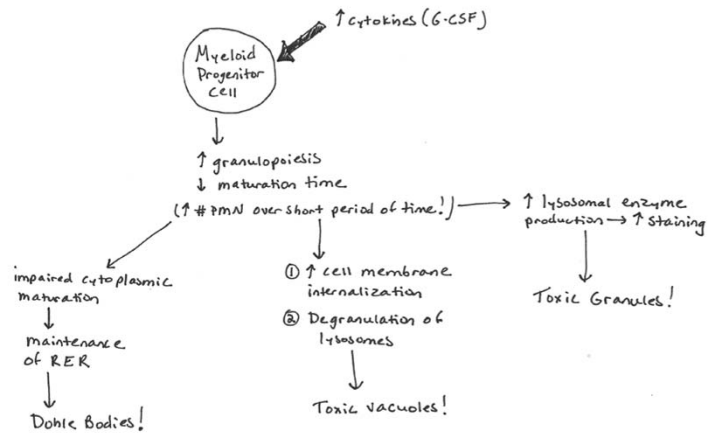 ↑ cytokines (G-CSF)
Myeloid
Progenitor
cell
↑ granulopoiesis
↓ maturation time
(↑ # PMN over short period of time!) →
↑ lysosomal enzyme
production → ↑ staining
Toxic Granules!
impaired cytoplasmic
maturation
maintenance
of RER
Dohle Bodies!
① ↑ cell membrane
internalization
② Degranulation of
lysosomes
Toxic vacuoles!